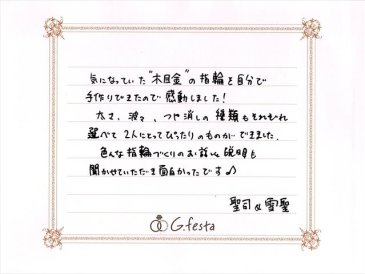 気になっていた"木目金"の指輪を自分で
手作りできたので感動しました!
太さ、波々、つや消しの種類もそれぞれ
選べて2人にとってぴったりのものができました。
色んな指輪づくりのお話し、説明も
聞かせていただき面白かったです♪
聖司&雪聖
G.festa